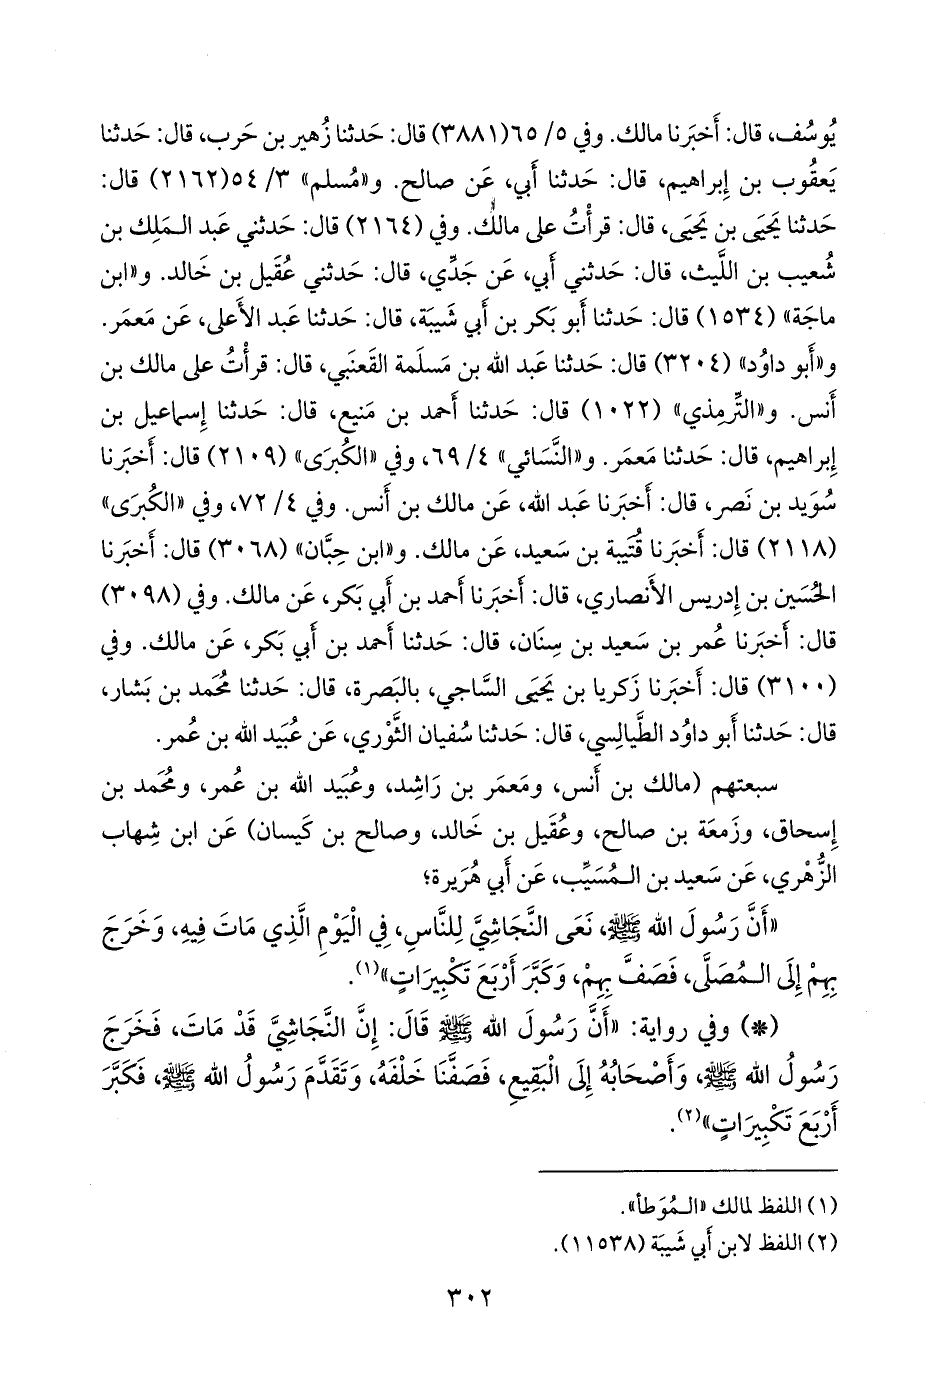 يُوسُف، قال: أَخبَرنا مالك. وفي ٥/ ٦٥(٣٨٨١) قال: حَدثنا زُهير بن حَرب، قال: حَدثنا
يَعقُوب بن إِبراهيم، قال: حَدثنا أَبي، عَن صالح. و«مُسلم» ٣/ ٥٤(٢١٦٢) قال:
حَدثنا يَحيَى بن يَحيَى، قال: قرأْتُ على مالك. وفي (٢١٦٤) قال: حَدثني عَبد الـمَلِك بن
شُعيب بن اللَّيث، قال: حَدثني أَبي، عَن جَدِّي، قال: حَدثني عُقَيل بن خَالد. و«ابن
ماجَة» (١٥٣٤) قال: حَدثنا أَبو بَكر بن أَبي شَيبَة، قال: حَدثنا عَبد الأَعلى، عَن مَعمَر.
و«أَبو داوُد» (٣٢٠٤) قال: حَدثنا عَبد الله بن مَسلَمة القَعنَبي، قال: قرأْتُ على مالك بن
أَنس. و«التِّرمِذي» (١٠٢٢) قال: حَدثنا أَحمد بن مَنيع، قال: حَدثنا إِسماعيل بن
إِبراهيم، قال: حَدثنا مَعمَر. و«النَّسَائي» ٤/ ٦٩، وفي «الكُبرَى» (٢١٠٩) قال: أَخبَرنا
سُوَيد بن نَصر، قال: أَخبَرنا عَبد الله، عَن مالك بن أَنس. وفي ٤/ ٧٢، وفي «الكُبرَى»
(٢١١٨) قال: أَخبَرنا قُتَيبة بن سَعيد، عَن مالك. و«ابن حِبَّان» (٣٠٦٨) قال: أَخبَرنا
الحُسَين بن إِدريس الأَنصاري، قال: أَخبَرنا أَحمد بن أَبي بَكر، عَن مالك. وفي (٣٠٩٨)
قال: أَخبَرنا عُمر بن سَعيد بن سِنَان، قال: حَدثنا أَحمد بن أَبي بَكر، عَن مالك. وفي
(٣١٠٠) قال: أَخبَرنا زَكريا بن يَحيَى السَّاجي، بالبَصرة، قال: حَدثنا مُحَمد بن بَشار،
قال: حَدثنا أَبو داوُد الطَّيالِسي، قال: حَدثنا سُفيان الثَّوْري، عَن عُبَيد الله بن عُمر.
سبعتهم (مالك بن أَنس، ومَعمَر بن رَاشِد، وعُبَيد الله بن عُمر، ومُحَمد بن
إِسحاق، وزَمعَة بن صالح، وعُقَيل بن خَالد، وصالح بن كَيسان) عَن ابن شِهاب
الزُّهْري، عَن سَعيد بن الـمُسَيِّب، عَن أَبي هُرَيرة؛
«أَنَّ رَسُولَ الله ﷺ، نَعَى النَّجَاشِيَّ لِلنَّاسِ، فِي الْيَوْمِ الَّذِي مَاتَ فِيهِ، وَخَرَجَ
بِهِمْ إِلَى الـمُصَلَّى، فَصَفَّ بِهِمْ، وَكَبَّرَ أَرْبَعَ تَكْبِيرَاتٍ»(١).
(*) وفي رواية: «أَنَّ رَسُولَ الله ﷺ قَالَ: إِنَّ النَّجَاشِيَّ قَدْ مَاتَ، فَخَرَجَ
رَسُولُ الله ﷺ، وَأَصْحَابُهُ إِلَى الْبَقِيعِ، فَصَفَّنَا خَلْفَهُ، وَتَقَدَّمَ رَسُولُ الله ﷺ، فَكَبَّرَ
أَرْبَعَ تَكْبِيرَاتٍ»(٢).
(١) اللفظ لمالك «الـمُوَطأ».
(٢) اللفظ لابن أَبي شَيبَة (١١٥٣٨).
٣٠٢